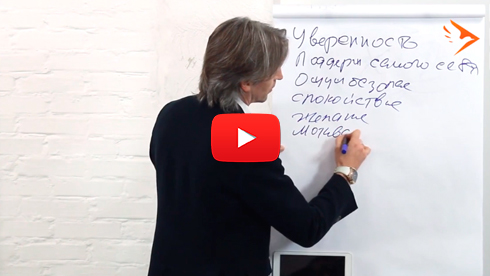 Уверенность
Поддерж самого себя
Ощущ безопас
спокойствие
желание
Мотива